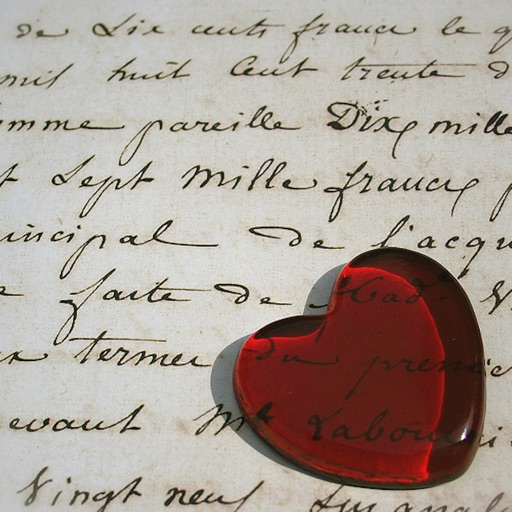 de Six cents francs le
mil huit Cent trente
mme pareille Dix mille
t Sept mille francs
incipal de l'acqu
faite de Mad
termes du premie
evant Me Labou
Vingt neuf